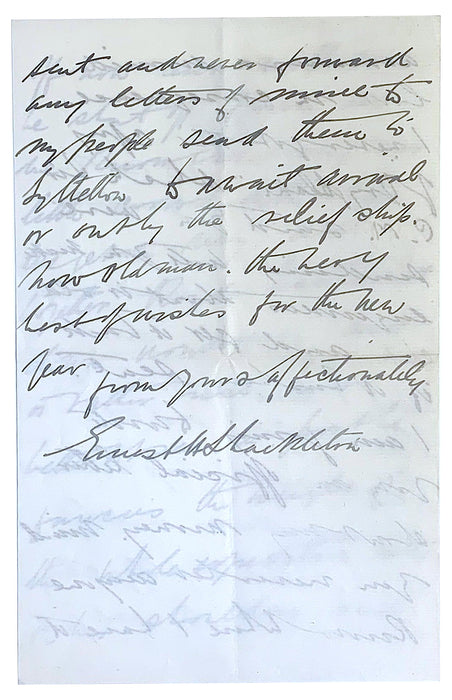 sent and never forward
any letters of mine to
my people send them to
Lyttelton to await arrival
or outby the relief ship.
now old man. the very
best of wishes for the new
year from yours affectionately
Ernest H Shackleton